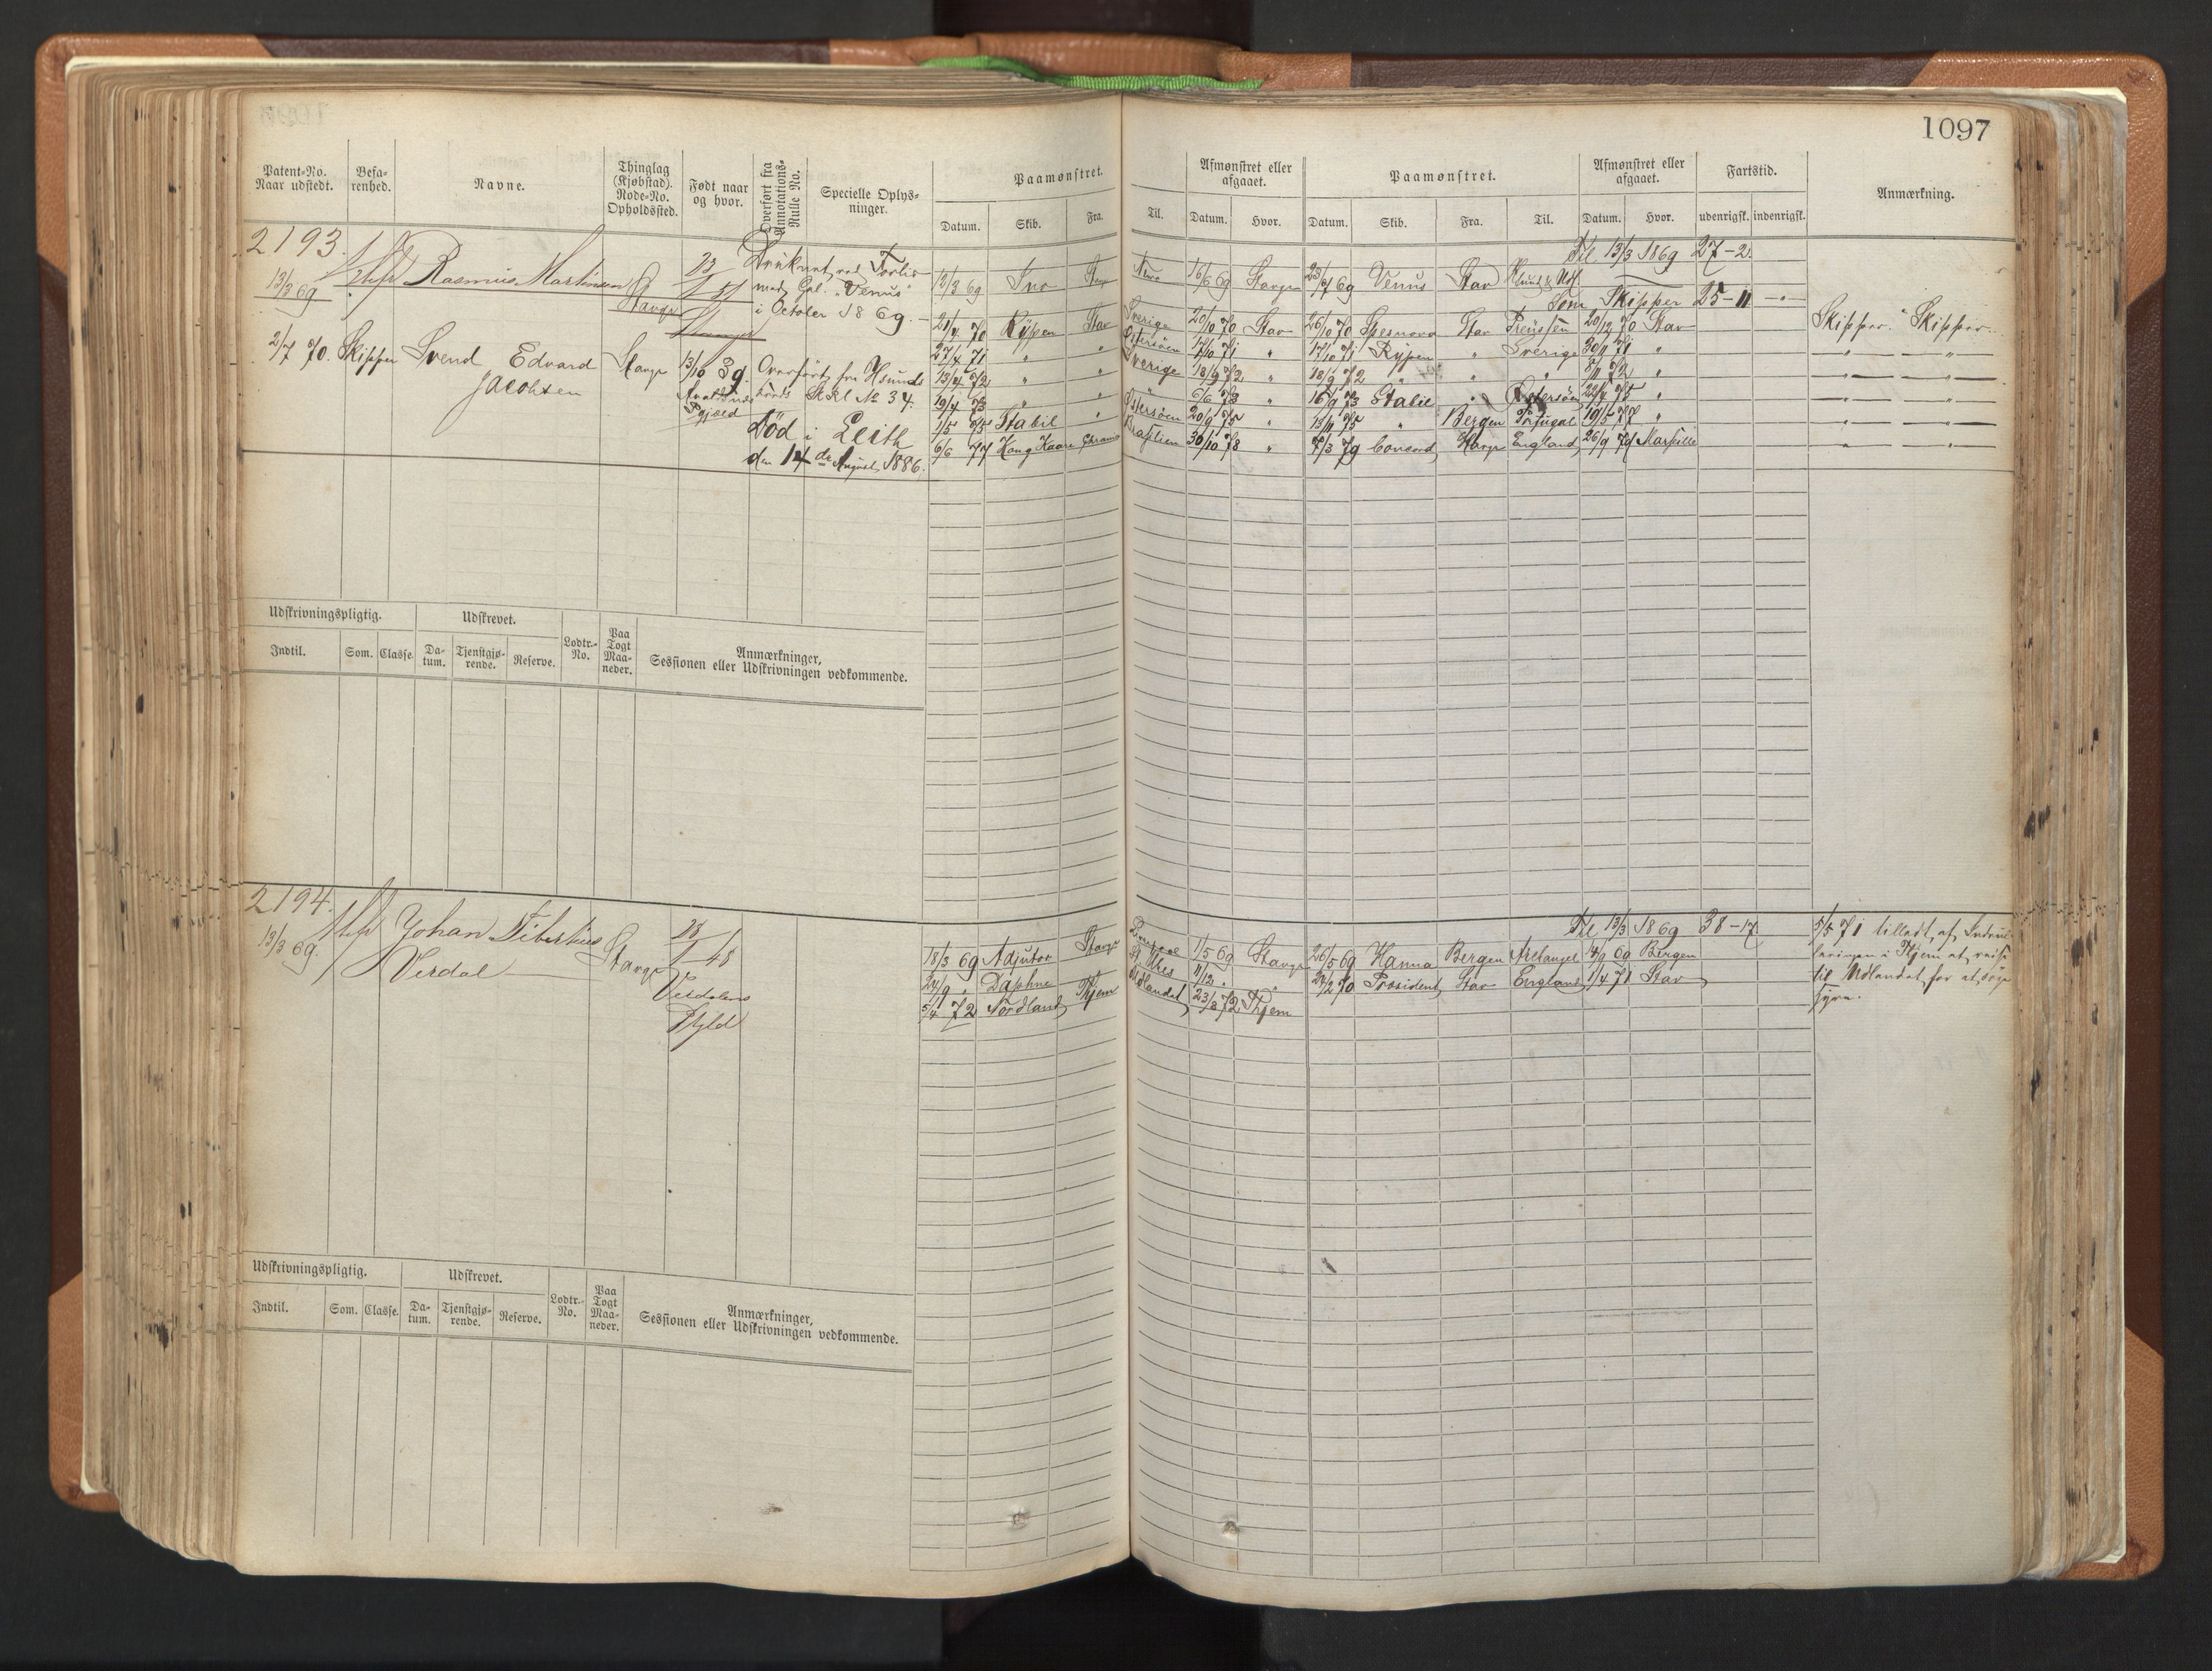 1097
Patent-No. Naar udstedt.
Befa-renhed.
Navne.
Thinglag (Kjøbstad). Rode-No. Opholdssted.
Født naar og hvor.
Overført fra Annotations-Rulle No.
Specielle Oplys-ninger.
Paamønstret.
Datum. Skib. Fra. Til.
Afmønstret eller afgaaet.
Datum. Hvor.
Paamønstret.
Datum. Skib. Fra. Til.
Afmønstret eller afgaaet.
Datum. Hvor.
Fartstid.
udenrigsk. indenrigsk.
Anmærkning.
2193.
13/3 69
Rasmus Martinsen
Stavgr
23/1 51
Druknet ved Forlis
med Gal. "Venus"
i October 1869.
Til 13/3 1869 27-2.
12/3 69 Ino 16/6 69 Stavgr 23/6 69 Venus Stav
Som Skipper 25-11
2/7 70. Skipper Svend Edvard
Jacobsen
Stavgr
13/10 39.
Skjold
Overført fra Hsunds
Skl No 34.
Død i Leith
den 14de August 1886.
21/4 70 Rypen Stav Sverige 20/10 70 Stav 26/10 70 Stav Preussen 20/12 70 Stav Skipper. " Skipper.
27/4 71 " " Østersöen 17/10 71 " 17/10 71 Rypen " Sverige 30/11 71 "
13/4 72 " " Sverige 18/9 72 " 18/9 72 " " " 8/11 72 "
19/4 73 " " " 6/6 73 " 16/9 73 Stabil " Østersöen 22/4 75 "
1/5 75 Stabil " Østersöen 20/9 75 " 13/11 75 " Bergen Portugal 19/5 77 "
6/6 77 Kong Haaro Brasilien 30/10 78 " 7/3 79 England 26/9 79 Marseille
Udskrivningspligtig.
Indtil. Som. Classe.
Udskrevet.
Da-tum. Tjenstgjø-rende. Reserve.
Lodtr.-No.
Paa Togt Maa-neder.
Anmærkninger,
Sessionen eller Udskrivningen vedkommende.
2194.
13/3 69.
Johan Tibertius
Verdal
Stavgr
28/1 48
Verdalens
Pgjld
Til 13/3 1869 38-17
18/3 69 Adjutor Stavgr 1/5 69 Stavgr 26/5 69 Hanna Bergen Archangel 4/9 69 Bergen
24/9 " Daphne St Ybes 11/12 " " 24/2 70 President Stav England 1/4 71 Stav
5/4 72 Nordland Thjem Udlandet 23/8 72 Thjem
5/5 71 tilladt af Indrul-
leringen i Thjem at reise
til Udlandet for at söge
hyre.
Udskrivningspligtig.
Indtil. Som. Classe.
Udskrevet.
Da-tum. Tjenstgjø-rende. Reserve.
Lodtr.-No.
Paa Togt Maa-neder.
Anmærkninger,
Sessionen eller Udskrivningen vedkommende.